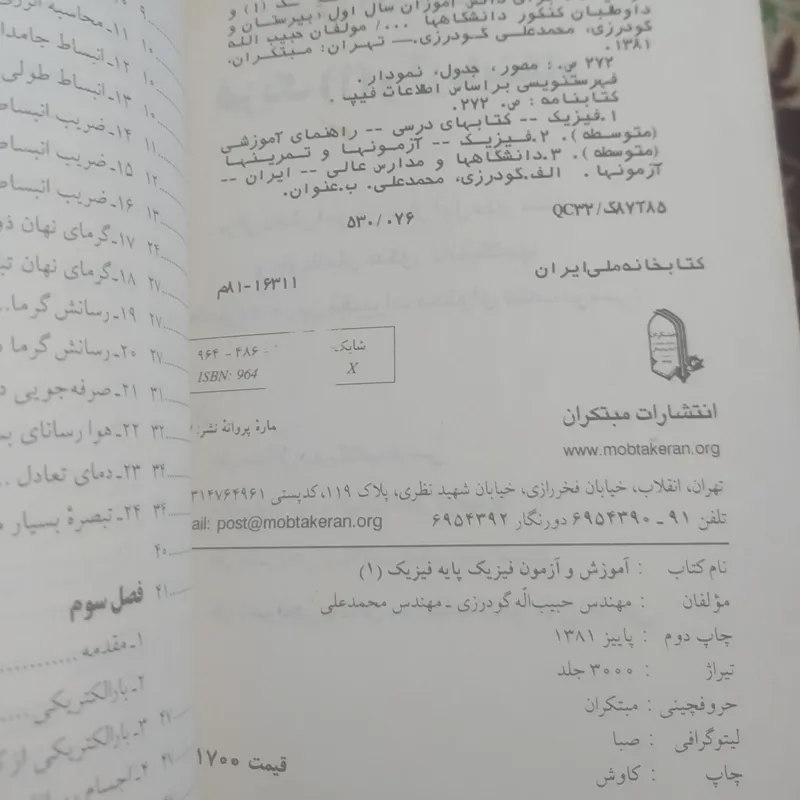 داوطلبان کنکور دانشگاهها .../ مولفان حبیب الله
گودرزی، محمدعلی گودرزی.— تهران: مبتکران،
۱۳۸۱.
۲۷۲ ص.: مصور، جدول، نمودار.
فهرستنویسی براساس اطلاعات فیپا.
کتابنامه: ص. ۲۷۲.
۱.فیزیک -- کتابهای درسی -- راهنمای آموزشی
(متوسطه). ۲.فیزیک -- آزمونها و تمرینها
(متوسطه). ۳.دانشگاهها و مدارس عالی -- ایران --
آزمونها. الف.گودرزی، محمدعلی. ب.عنوان.
۵۳۰/۰۷۶
QC۳۲/گ۸۷۲۸۵
کتابخانه ملی ایران
۸۱-۱۶۳۱۱م
شابک:
۹۶۴ - ۴۸۶ -
X
ISBN: 964
انتشارات مبتکران
ماره پروانهٔ نشر:
www.mobtakeran.org
تهران، انقلاب، خیابان فخررازی، خیابان شهید نظری، پلاک ۱۱۹، کدپستی ۳۱۴۷۶۴۹۶۱
تلفن ۹۱ ـ ۶۹۵۴۳۹۰ دورنگار ۶۹۵۴۳۹۲
ail: post@mobtakeran.org
نام کتاب : آموزش و آزمون فیزیک پایه فیزیک (۱)
مؤلفان : مهندس حبیب‌الّه گودرزی ـ مهندس محمدعلی
چاپ دوم : پاییز ۱۳۸۱
تیراژ : ۳۰۰۰ جلد
حروفچینی : مبتکران
لیتوگرافی : صبا
چاپ : کاوش
قیمت ۱۷۰۰
۹
۱۱ـ محاسبه انرژی
۱۰
۱۲ـ انبساط جامدا
۱۰
۱۳ـ انبساط طولی
۱۰
۱۴ـ ضریب انبساط
۱۱
۱۵ـ ضریب انبساط
۱۲
۱۶ـ ضریب انبساط
۱۳
۱۷ـ گرمای نهان ذو
۲۴
۱۸ـ گرمای نهان تب
۲۷
۱۹ـ رسانش گرما..
۲۷
۲۰ـ رسانش گرما
۲۷
۲۱ـ صرفه‌جویی د
۳۱
۲۲ـ هوا رسانای
۳۲
۲۳ـ دمای تعادل ..
۳۴
۲۴ـ تبصرهٔ بسیار
۳۴
۴۰
فصل سوم
۴۱
۱ـ مقدمه ............
۲ـ بارالکتریکی....
۴۷
۳ـ بارالکتریکی از
۴۷
۴ـ اجسام